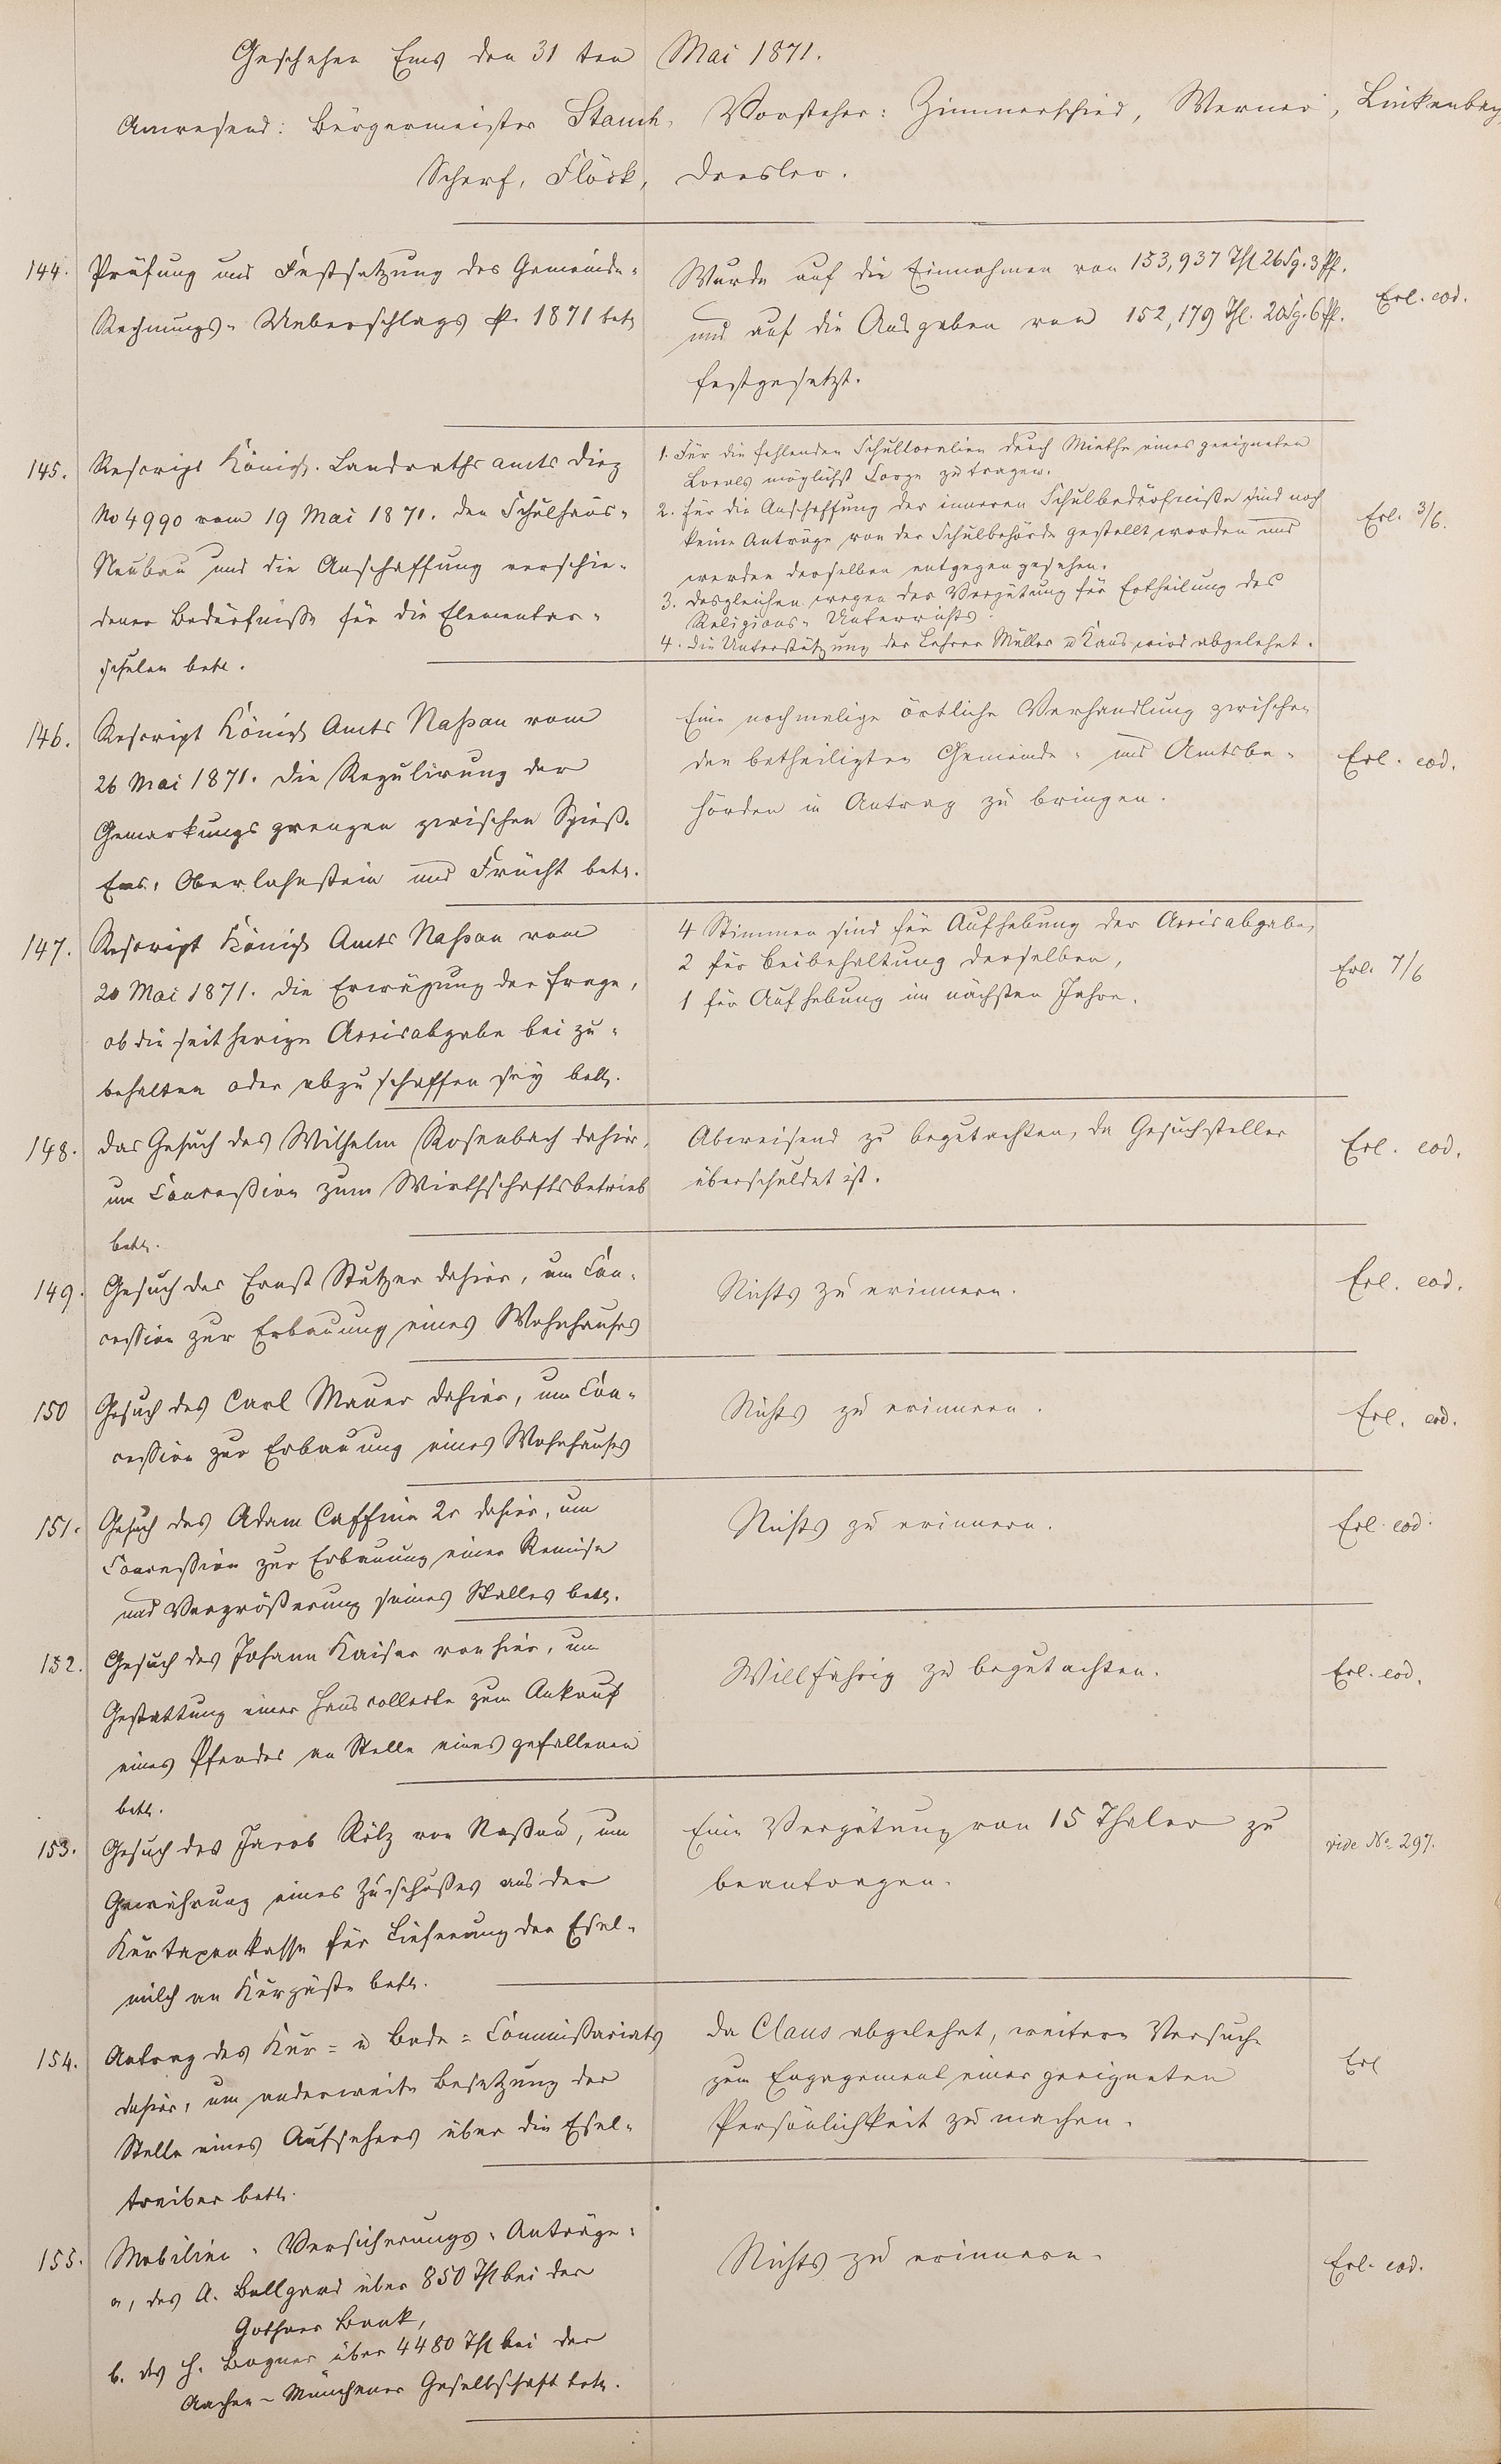 Geschehen Ems den 31 ten Mai 1871.
Anwesend: Bürgermeister Stauch, Vorsteher: Zimmerschied, Werner, Linkenbach,
Scherf, Flöck, Dresler.
144. Prüfung und Festsetzung des Gemeinde-
Rechnungs-Ueberschlags p. 1871 betr
Wurde auf die Einnahmen von 153,937 Thl 26 Sg. 3 Pf.
und auf die Ausgaben von 152,179 Thl. 20 Sg. 6 Pf.
festgesetzt.
Erl. eod.
145. Rescript Königl. Landrathsamts Diez
No 4990 vom 19 Mai 1871. den Schulhaus-
Neubau und die Anschaffung verschie-
dener Bedürfnisse für die Elementar-
schulen betr.
1. Für die fehlenden Schullocalien durch Miethe eines geeigneten
Locales möglichst Sorge zu tragen.
2. für die Anschaffung der inneren Schulbedürfnisse sind noch
keine Anträge von der Schulbehörde gestellt worden und
werden derselben entgegen gesehen.
3. desgleichen wegen der Vergütung für Ertheilung des
Religions-Unterrichts.
4. die Unterstützung der Lehrer Müller u Kaus wird abgelehnt.
Erl. 3/6.
146. Rescript Königl Amts Naßau vom
26 Mai 1871. die Regulirung der
Gemarkungsgrenzen zwischen Spieß-
Ems, Oberlahnstein und Frücht betr.
Eine nochmalige örtliche Verhandlung zwischen
den betheiligten Gemeinde- und Amtsbe-
hörden in Antrag zu bringen.
Erl. eod.
147. Rescript Königl Amts Naßau vom
20 Mai 1871. die Erwägung der Frage,
ob die seitherige Accisabgabe bei zu-
behalten oder abzuschaffen sey betr.
4 Stimmen sind für Aufhebung der Accisabgabe,
2 für Beibehaltung derselben,
1 für Aufhebung im nächsten Jahre.
Erl. 7/6
148. das Gesuch des Wilhelm Rosenbach dahier,
um Concession zum Wirthschaftsbetrieb
betr.
Abweisend zu begutachten, da Gesuchsteller
überschuldet ist.
Erl. eod.
149. Gesuch des Ernst Stutzer dahier, um Con-
cession zur Erbauung eines Wohnhauses
Nichts zu erinnern.
Erl. eod.
150 Gesuch des Carl Mauer dahier, um Con-
cession zur Erbauung eines Wohnhauses
Nichts zu erinnern.
Erl. eod.
151. Gesuch des Adam Caffine 2r dahier, um
Concession zur Erbauung einer Remise
und Vergrößerung seines Stalles betr.
Nichts zu erinnern.
Erl. eod.
152. Gesuch des Johann Kaiser von hier, um
Gestattung einer Hauscollecte zum Ankauf
eines Pferdes an Stelle eines gefallenen
betr.
Willfahrig zu begutachten.
Erl. eod.
153. Gesuch des Jacob Rölz von Naßau, um
Gewährung eines Zuschußes aus der
Kurtaxenkasse für Lieferung der Esel-
milch an Kurgäste betr.
Eine Vergütung von 15 Thaler zu
beantragen.
vide No 297.
154. Antrag des Kur- u Bade-Commißariats
dahier, um anderweite Besetzung der
Stelle eines Aufsehers über die Esel-
treiber betr.
Da Claus abgelehnt, weitere Versuche
zum Engagement einer geeigneten
Persönlichkeit zu machen.
Erl
155. Mobiliar-Versicherungs-Anträge:
a, des A. Bellgard über 850 Thl bei der
Gothaer Bank,
b. des H. Bogner über 4480 Thl bei der
Aachen-Münchener Gesellschaft betr.
Nichts zu erinnern.
Erl. eod.